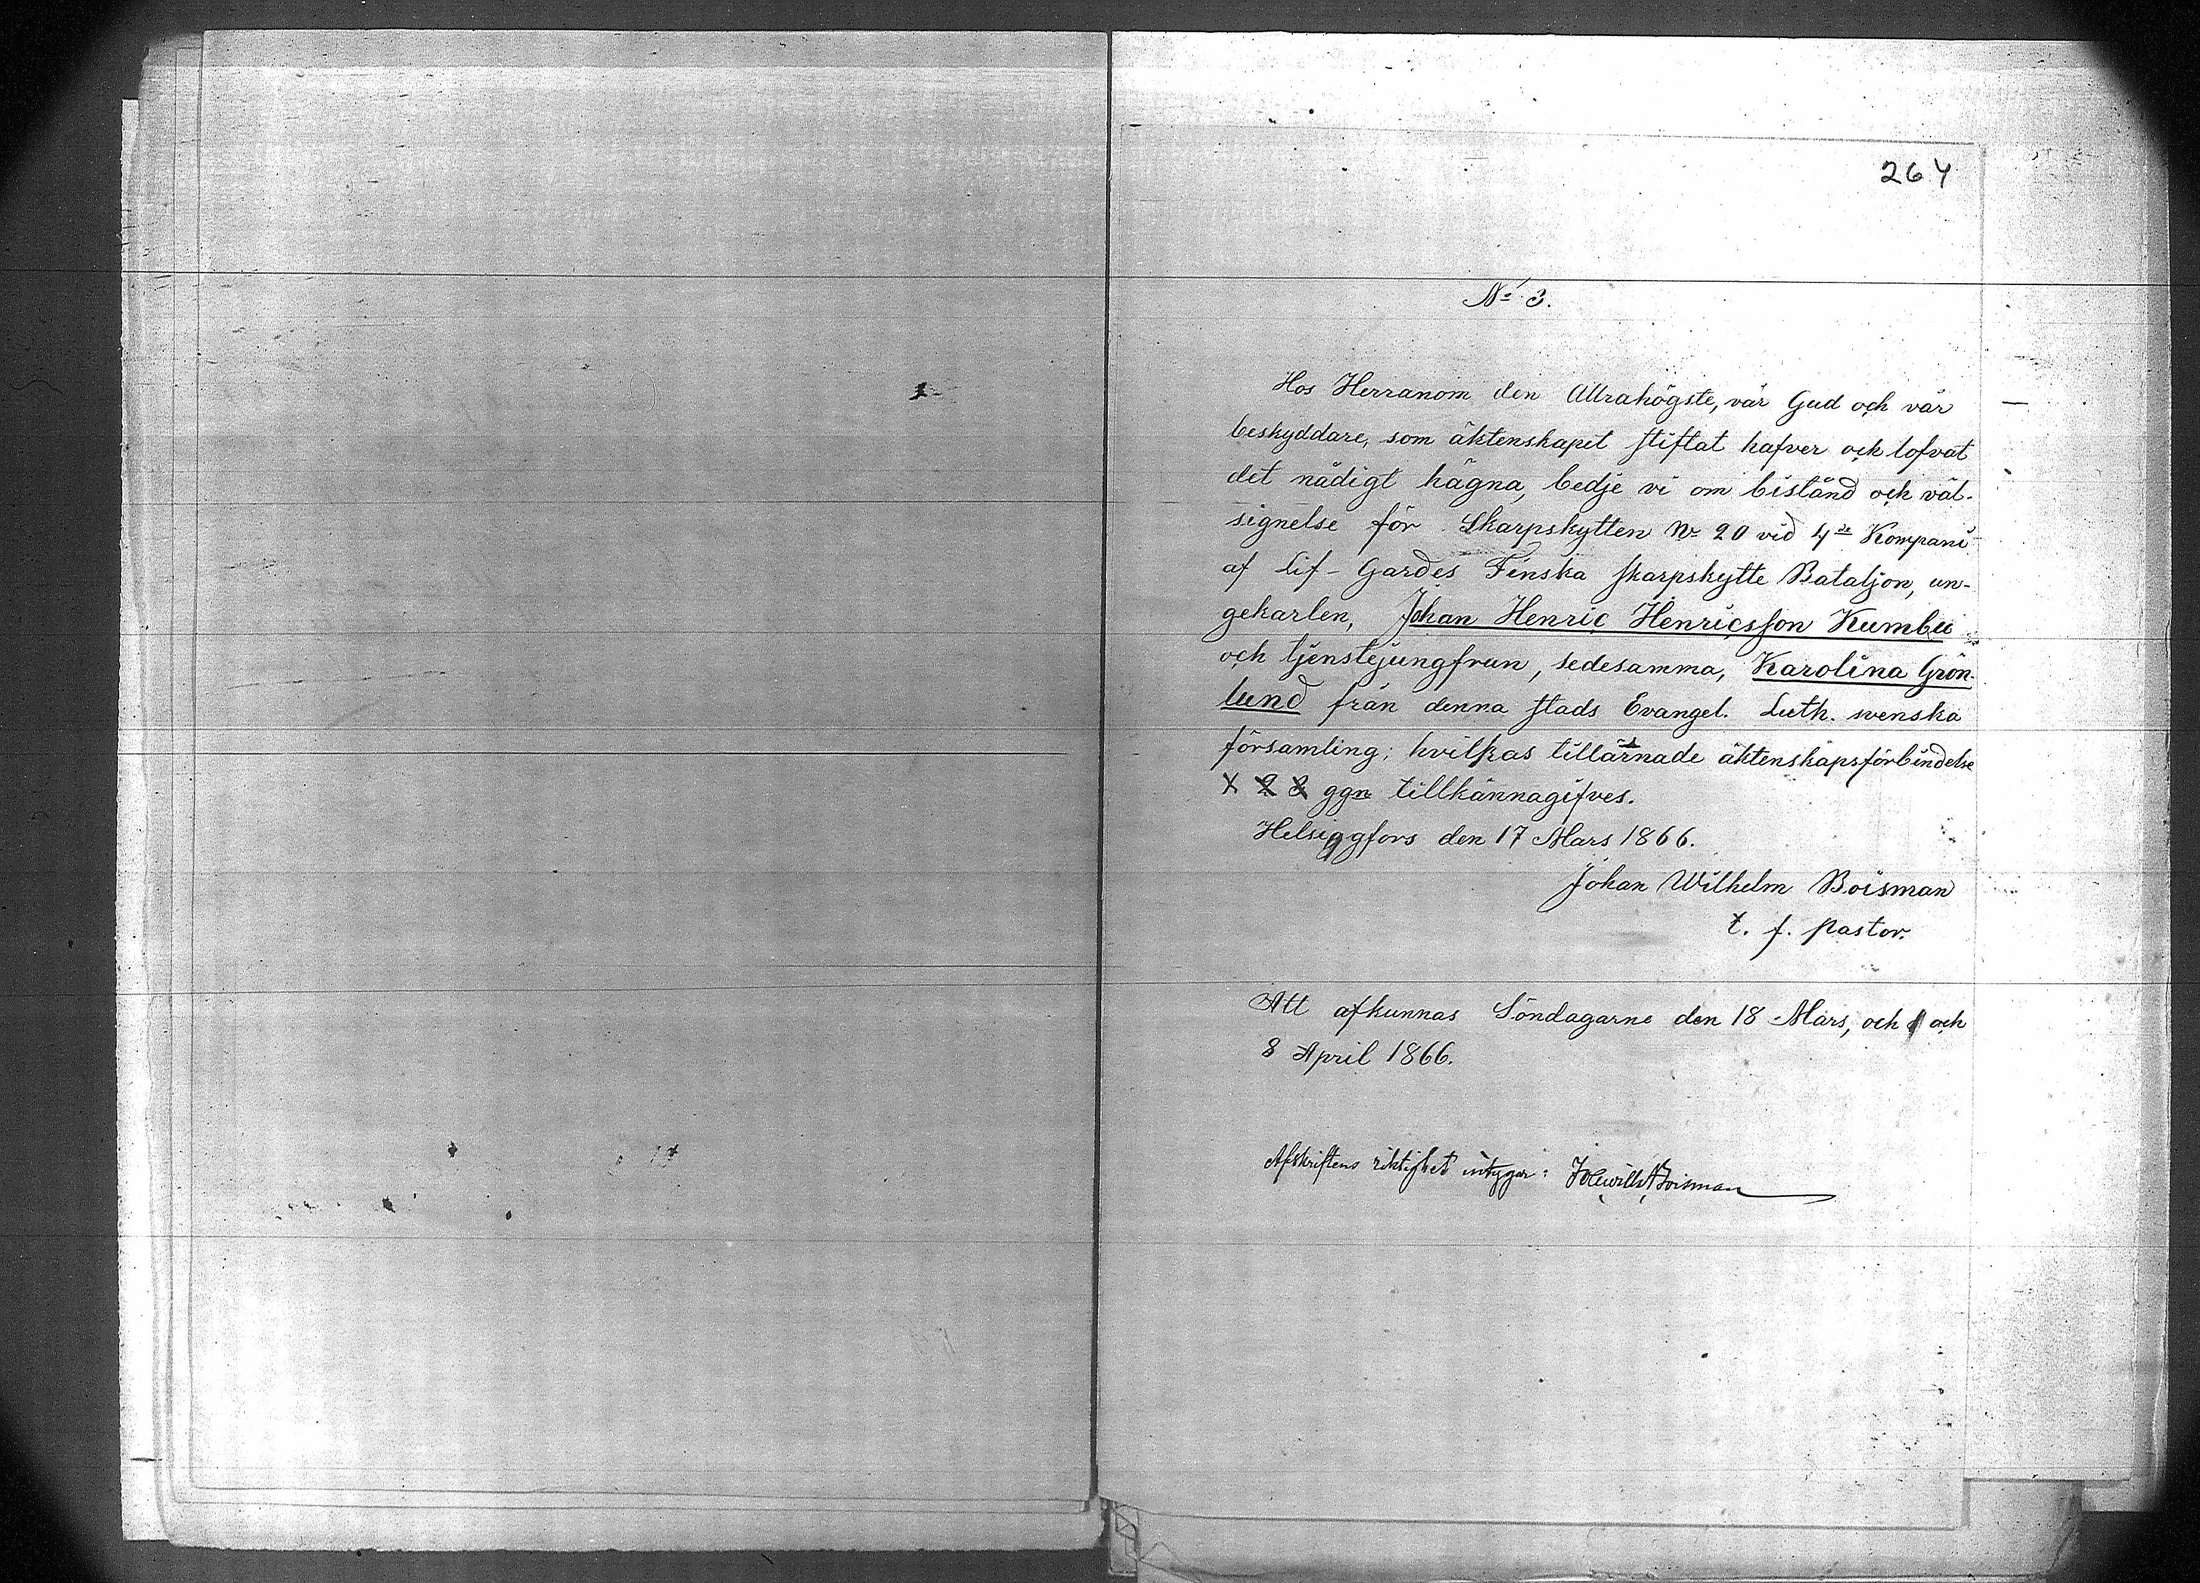 264
No 3.
Hos Herranom den Allrahögste, vår Gud och vår
beskyddare, som äktenskapet stiftat hafver och lofvat
det nådigt hägna, bedje vi om bistånd och väl-
signelse för Skarpskytten No 20 vid 4de Kompani
af Lif-Gardes Finska skarpskytte Bataljon, un-
gekarlen, Johan Henric Henricsson
och tjenstejungfrun, sedesamma, Karolina Grön-
lund från denna stads Evangel. Luth. svenska
församling; hvilkas tillärnade äktenskapsförbindelse
ggn tillkännagifves.
Helsingfors den 17 Mars 1866.
Johan Wilhelm Boisman
t. f. pastor.
Att afkunnas Söndagarne den 18 Mars, och 1 och
8 April 1866.
Afskriftens riktighet intygar: Boisman